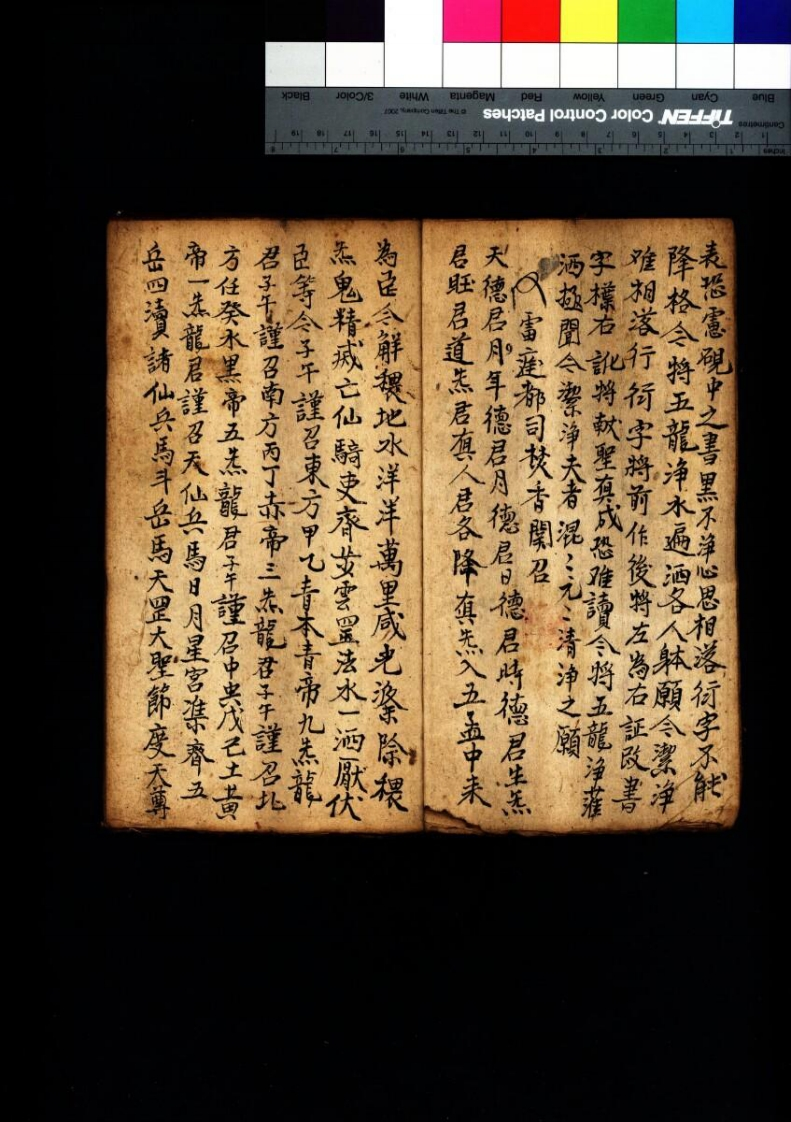 表恐憲硯中之書黑不淨心思相落衍字不能
降格令將五龍淨水遍洒各人躰願令潔淨
难相落行衍字將前作後將左為右証改書
字樣右訛將献聖真成恐难讀令將五龍淨薩
洒極聞令潔淨夫者混〻元〻清淨之願
雷霆都司焚香関召
天德君月年德君月德君日德君時德君生炁
君旺君道炁君真人君各降真炁入五盂中来
為臣令解穢地水洋洋萬里咸光㴝除穢
炁鬼精滅亡仙騎吏齊並雲罡法水一洒厭伏
臣等令子午謹召東方甲乙青本青帝九炁龍
君子午謹召南方丙丁赤帝三炁龍君子午謹召北
方任癸水黑帝五炁龍君子午謹召中央戊己土黃
帝一炁龍君謹召天仙兵馬日月星宮凖齊五
岳四瀆諸仙兵馬斗岳馬天罡大聖節度天尊
TIFFEN Color Control Patches
© The Tiffen Company, 2007
Centimetres
Inches
Blue Cyan Green Yellow Red Magenta White 3/Color Black